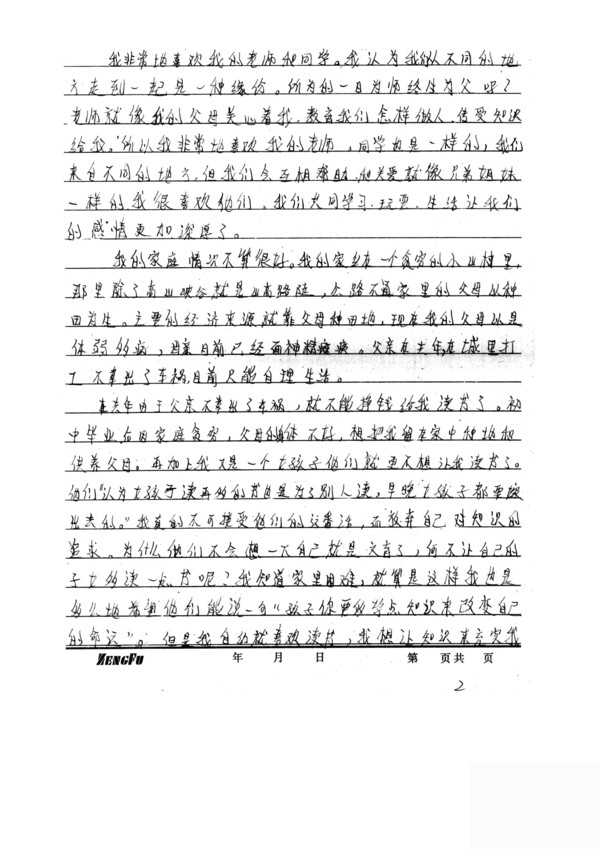 我非常地喜欢我的老师和同学。我认为我们从不同的地
方走到一起是一种缘份。所为的一日为师终生为父吧？
老师就像我的父母关心着我，教育我们怎样做人，传受知识
给我。所以我非常地喜欢我的老师，同学也是一样的，我们
来自不同的地方，但我们会互相帮助，相关爱就像兄弟姐妹
一样的，我很喜欢他们，我们共同学习、玩耍、生活让我们
的感情更加深厚了。
我的家庭情况不算很好。我的家是在一个贫穷的小山村里，
那里除了高山峡谷就是山高路陡，公路不通家里的父母以种
田为生。主要的经济来源就靠父母种田地，现在我的父母又是
体弱多病，母亲目前已经面神经瘫痪。父亲在去年在城里打
工不幸出了车祸，目前只能自理生活。
在去年由于父亲不幸出了车祸，就不能挣钱给我读书了。初
中毕业后因家庭贫穷，父母的身体不好，想把我留在家中种地和
供养父母。再加上我又是一个女孩子他们就更不想让我读书了。
他们“认为女孩子读再多的书也是为了别人读，早晚女孩子都要嫁
出去的。”我真的不可接受他们的这番话，而放弃自己对知识的
追求。为什么他们不会想一下自己就是文盲了，何不让自己的
子女多读一点书呢？我知道家里困难，就算是这样我也是
多么地希望他们能说一句“孩子你要多学点知识来改变自己
的命运”。但是我自幼就喜欢读书，我想让知识来充实我
ZENGFU 年 月 日 第 页共 页
2